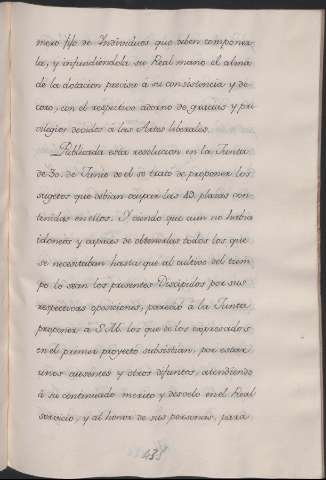 mero fijo de Individuos que deben componer
la, y infundiendola su Real mano el alma
de la dotacion precisa à su consistencia y de
coro, con el respectivo adorno de gracias y pri
vilegios devidos à las Artes liberales.
Publicada esta resolucion en la Junta
de 30. de Junio de el se trato de proponer los
sugetos que debian ocupar las 40. plazas con
tenidas en ellos. Y viendo que aun no habia
idoneos y capaces de obtenerlas todos los que
se necesitaban hasta que al cultivo del tiem
po lo sean los presentes Discipulos por sus
respectivas oposiciones, pareciò à la Junta
proponer à S.M. los que de los expresados
en el primer proyecto subsistian, por estar
unos ausentes y otros difuntos, atendiendo
à su continuado merito y desvelo en el Real
servicio, y al honor de sus personas, para